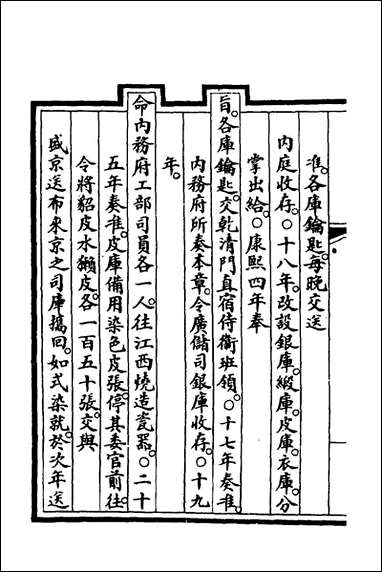 准各庫鑰匙每晚交送
內庭收存○十八年改設銀庫緞庫皮庫衣庫分
掌出給○康熙四年奉
旨各庫鑰匙交乾清門直宿侍衛班領○十七年奏准
內務府所奏本章令廣儲司銀庫收存○十九
年
命內務府工部司員各一人往江西燒造瓷器○二十
五年奏准皮庫備用染色皮張停其委官前往
令將貂皮水獺皮各一百五十張交與
盛京送布來京之司庫攜回如式染就於次年送